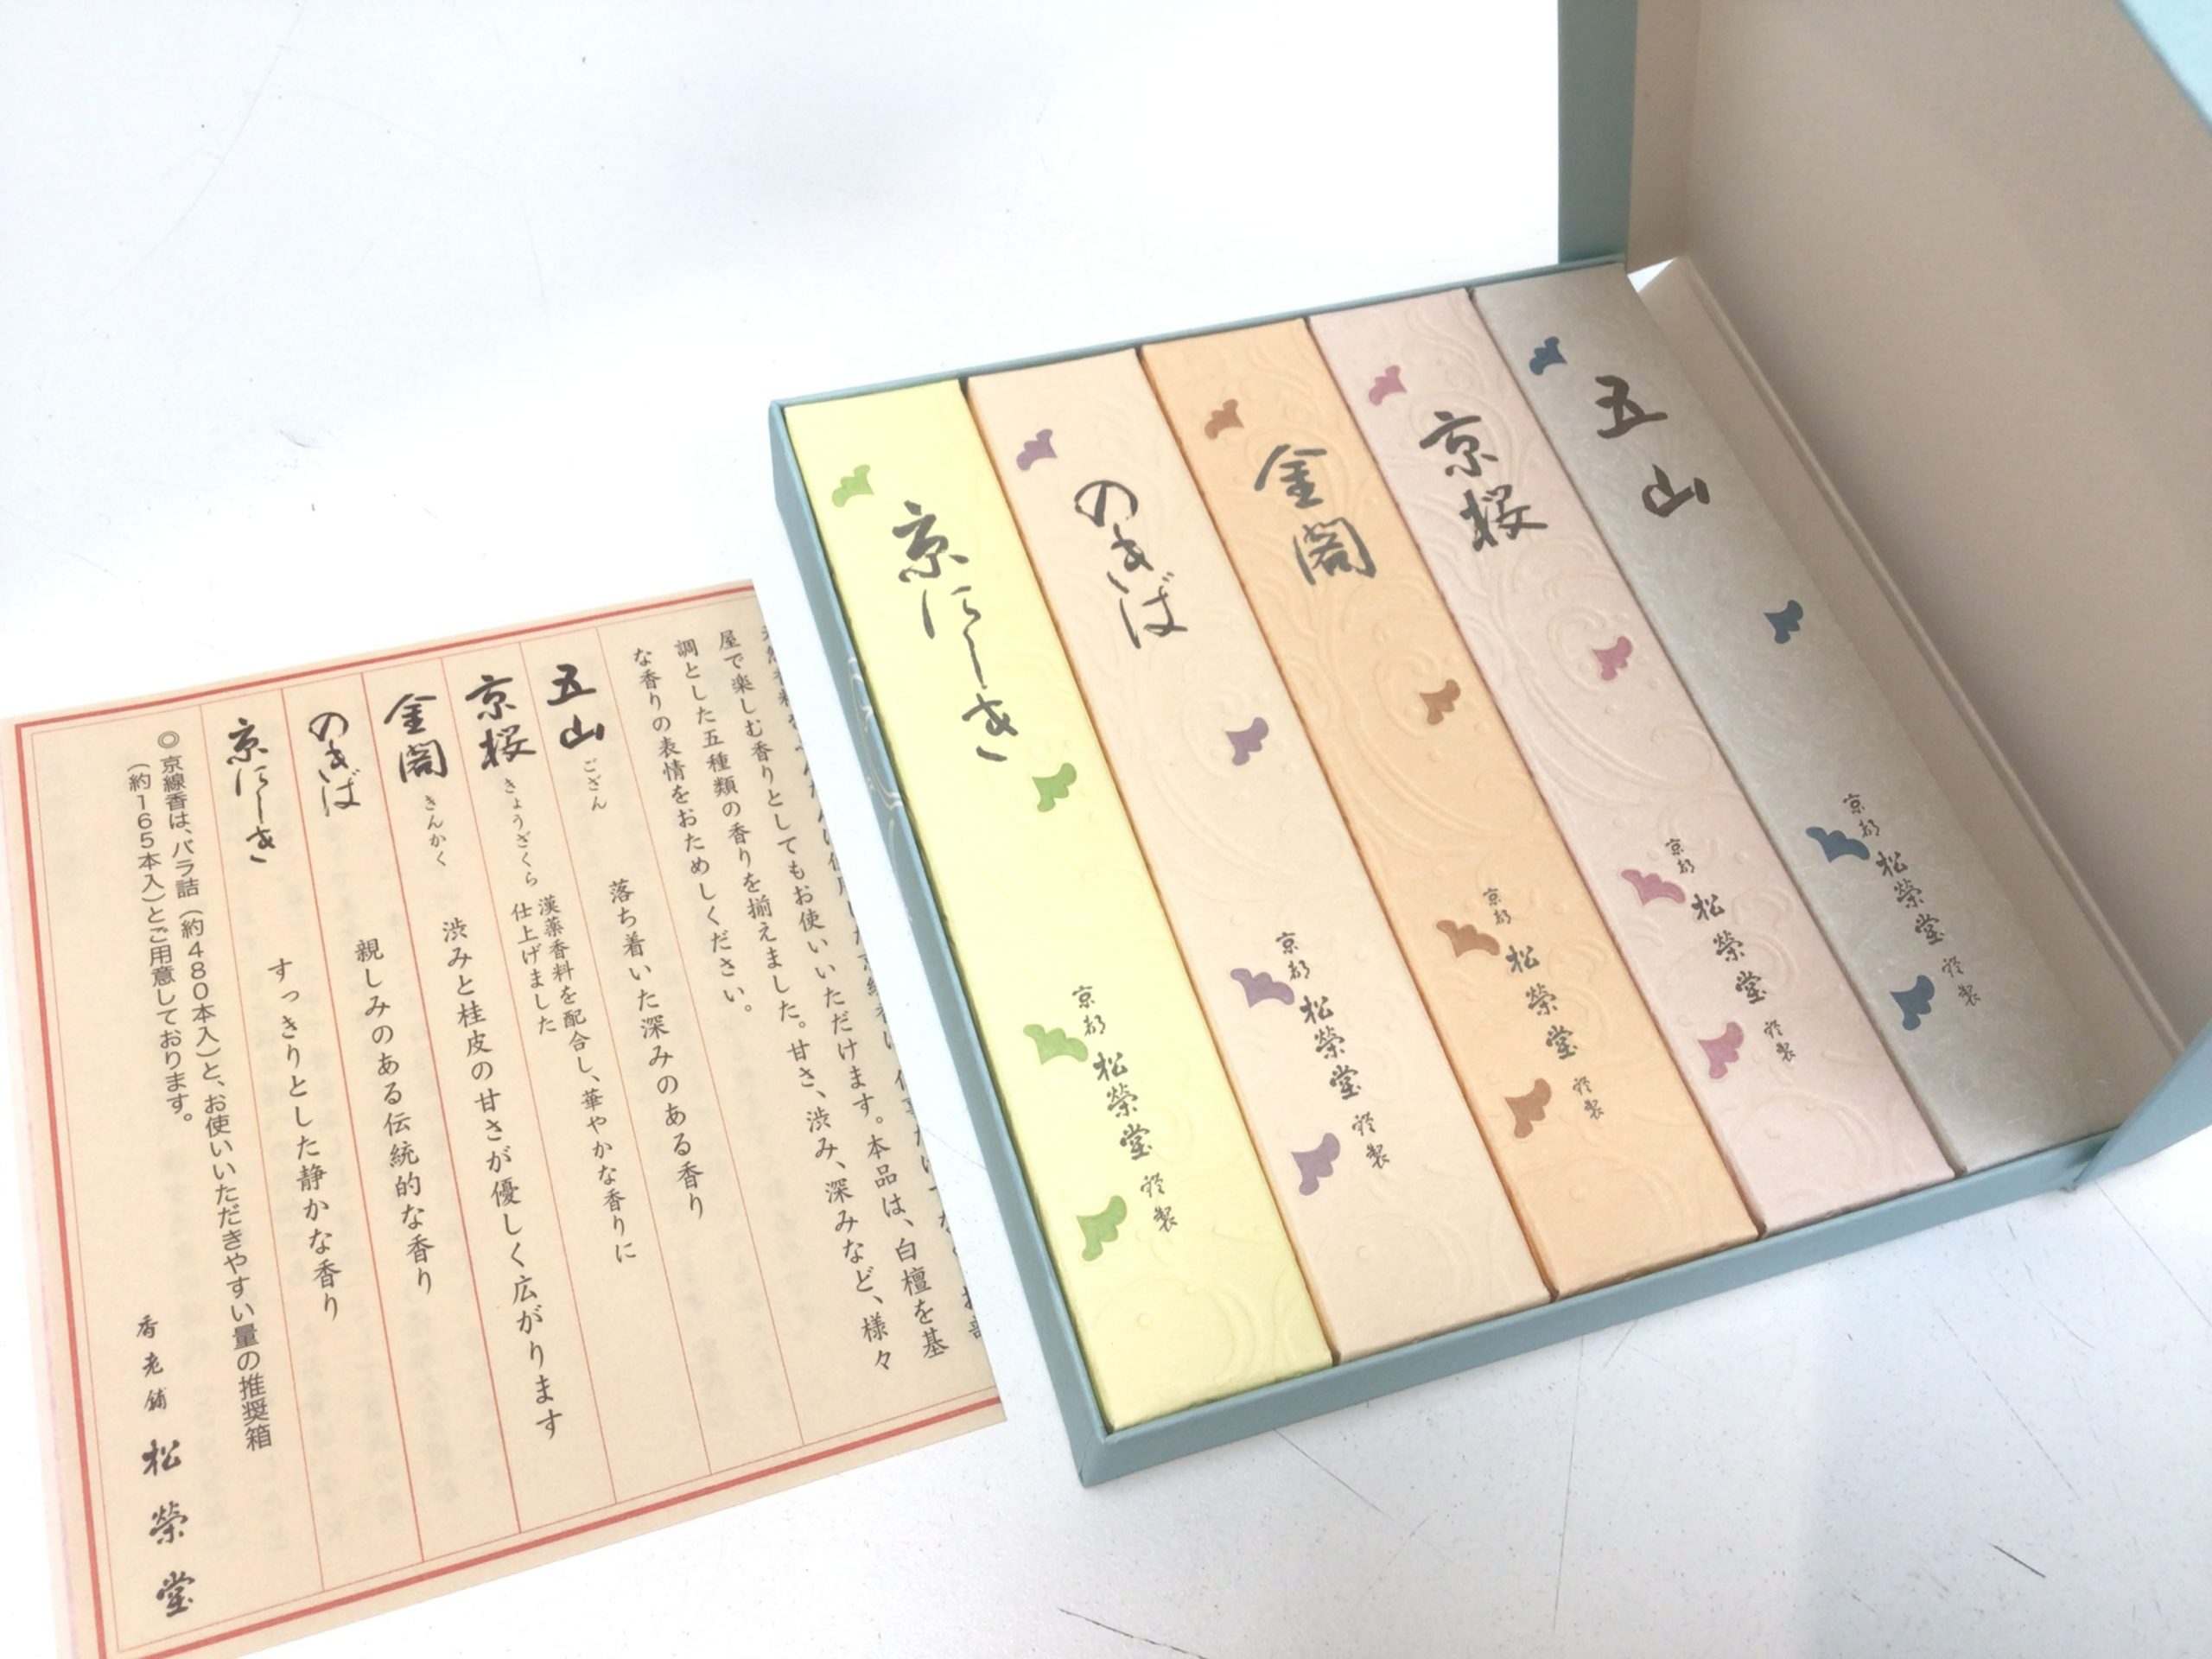 屋で楽しむ香りとしてもお使いいただけます。本品は、白檀を基
調とした五種類の香りを揃えました。甘さ、渋み、深みなど、様々
な香りの表情をおためしください。
五山 ござん 落ち着いた深みのある香り
京桜 きょうざくら 漢薬香料を配合し、華やかな香りに
仕上げました
金閣 きんかく 渋みと桂皮の甘さが優しく広がります
のきば 親しみのある伝統的な香り
京にしき すっきりとした静かな香り
◎京線香は、バラ詰(約480本入)と、お使いいただきやすい量の推奨箱
(約165本入)とご用意しております。
香老舗 松榮堂
五山
京都 松榮堂 謹製
京桜
京都 松榮堂 謹製
金閣
京都 松榮堂 謹製
のきば
京都 松榮堂 謹製
京にしき
京都 松榮堂 謹製